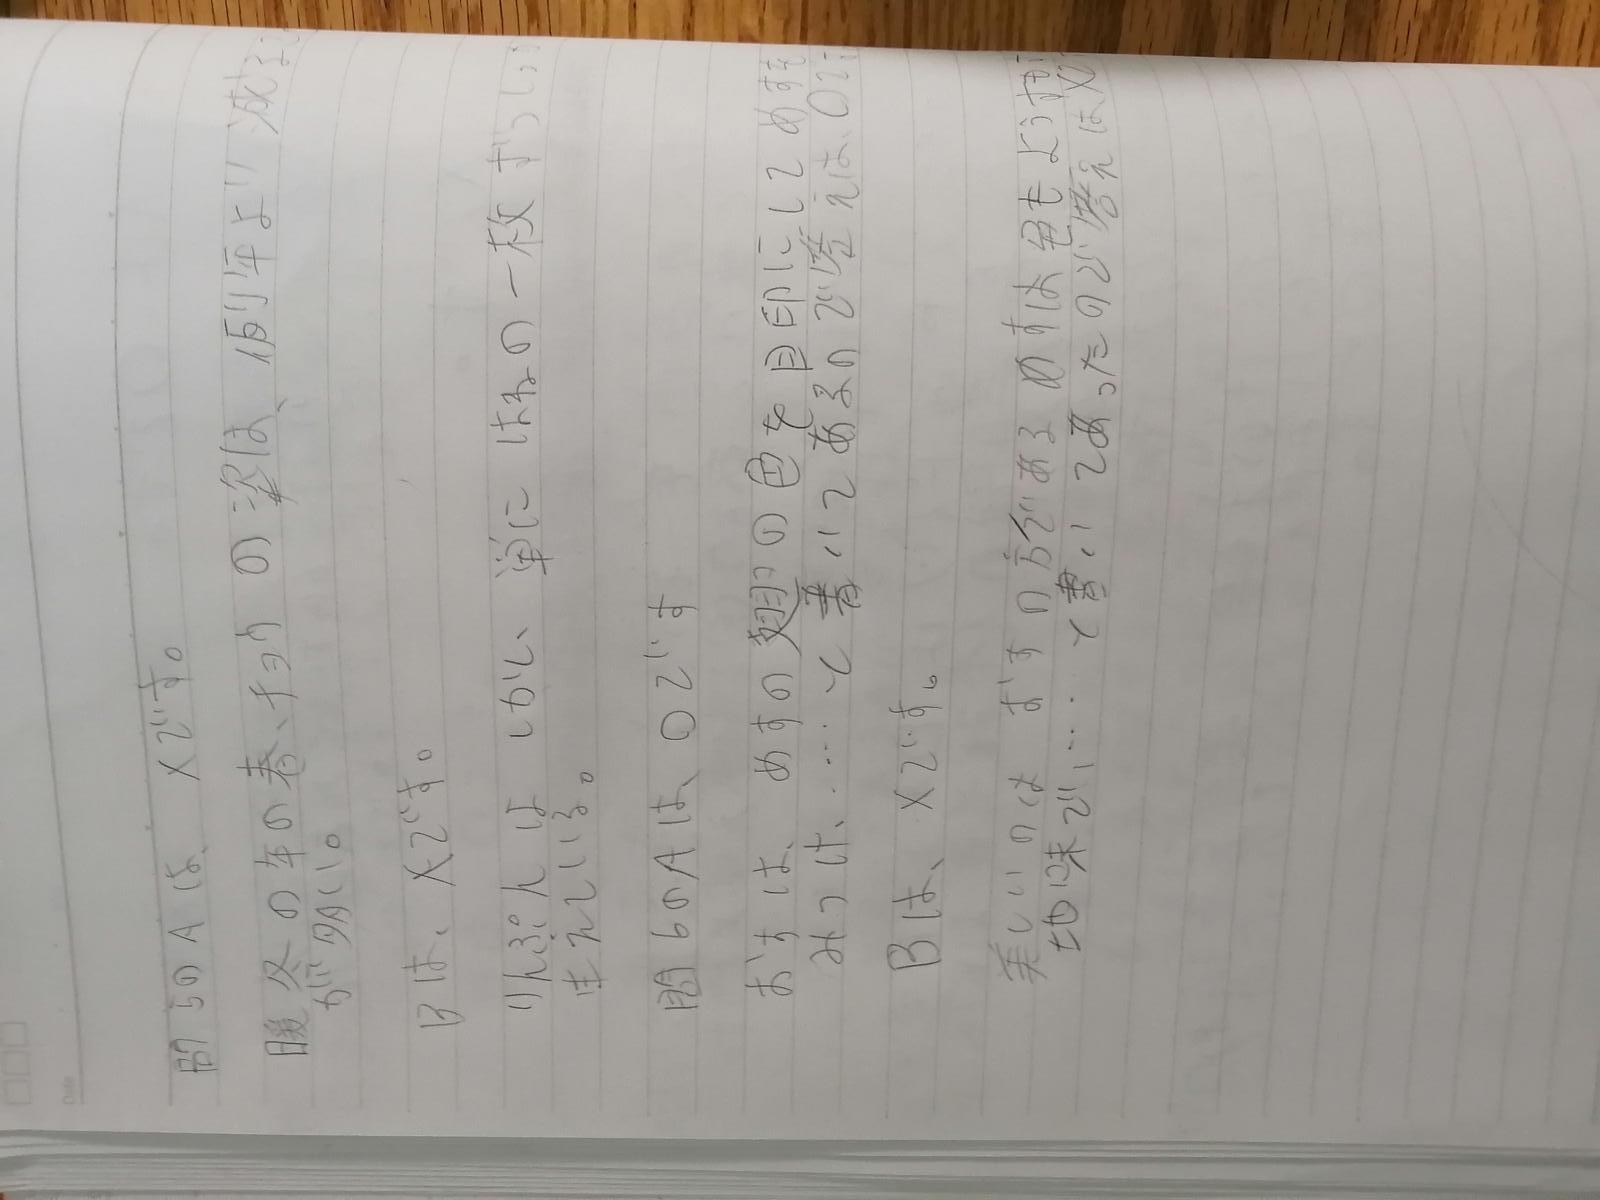 問5のAは、×です。
暖冬の年の春、チョウの姿は、例年より減る
が多い。
Bは、×です。
りんぷんはしかし、単にはねの一枚ずつ
生えている。
問6のAは、○です
おすは、めすの翅の色を目印にしてめすを
みつけ、……と書いてあるので答えは、○
Bは、×です。
美しいのはおすの方であるめすは色もよう
地味で、…と書いてあったので答えは×